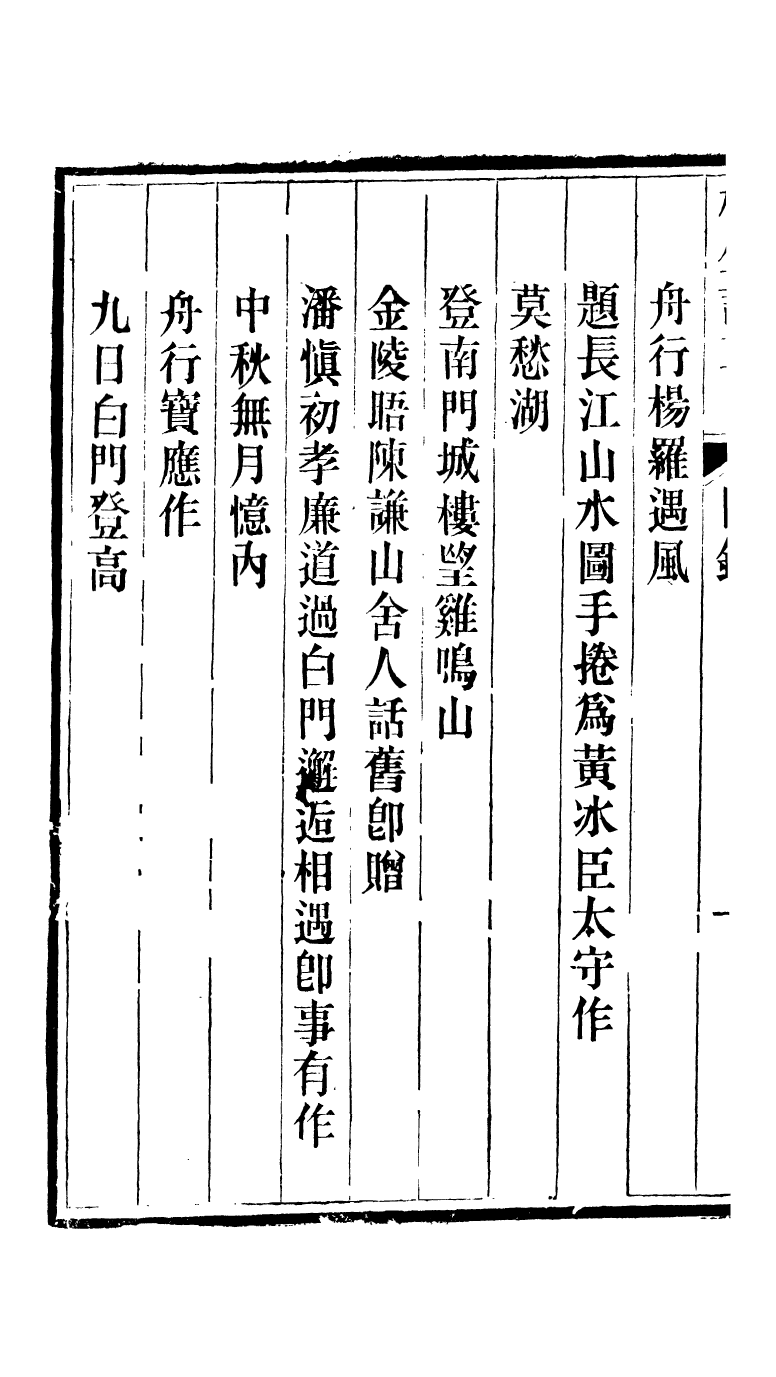 舟行楊羅遇風
題長江山水圖手捲爲黃冰臣太守作
莫愁湖
登南門城樓望雞鳴山
金陵晤陳謙山舍人話舊卽贈
潘愼初孝廉道過白門邂逅相遇卽事有作
中秋無月憶內
舟行寶應作
九日白門登高